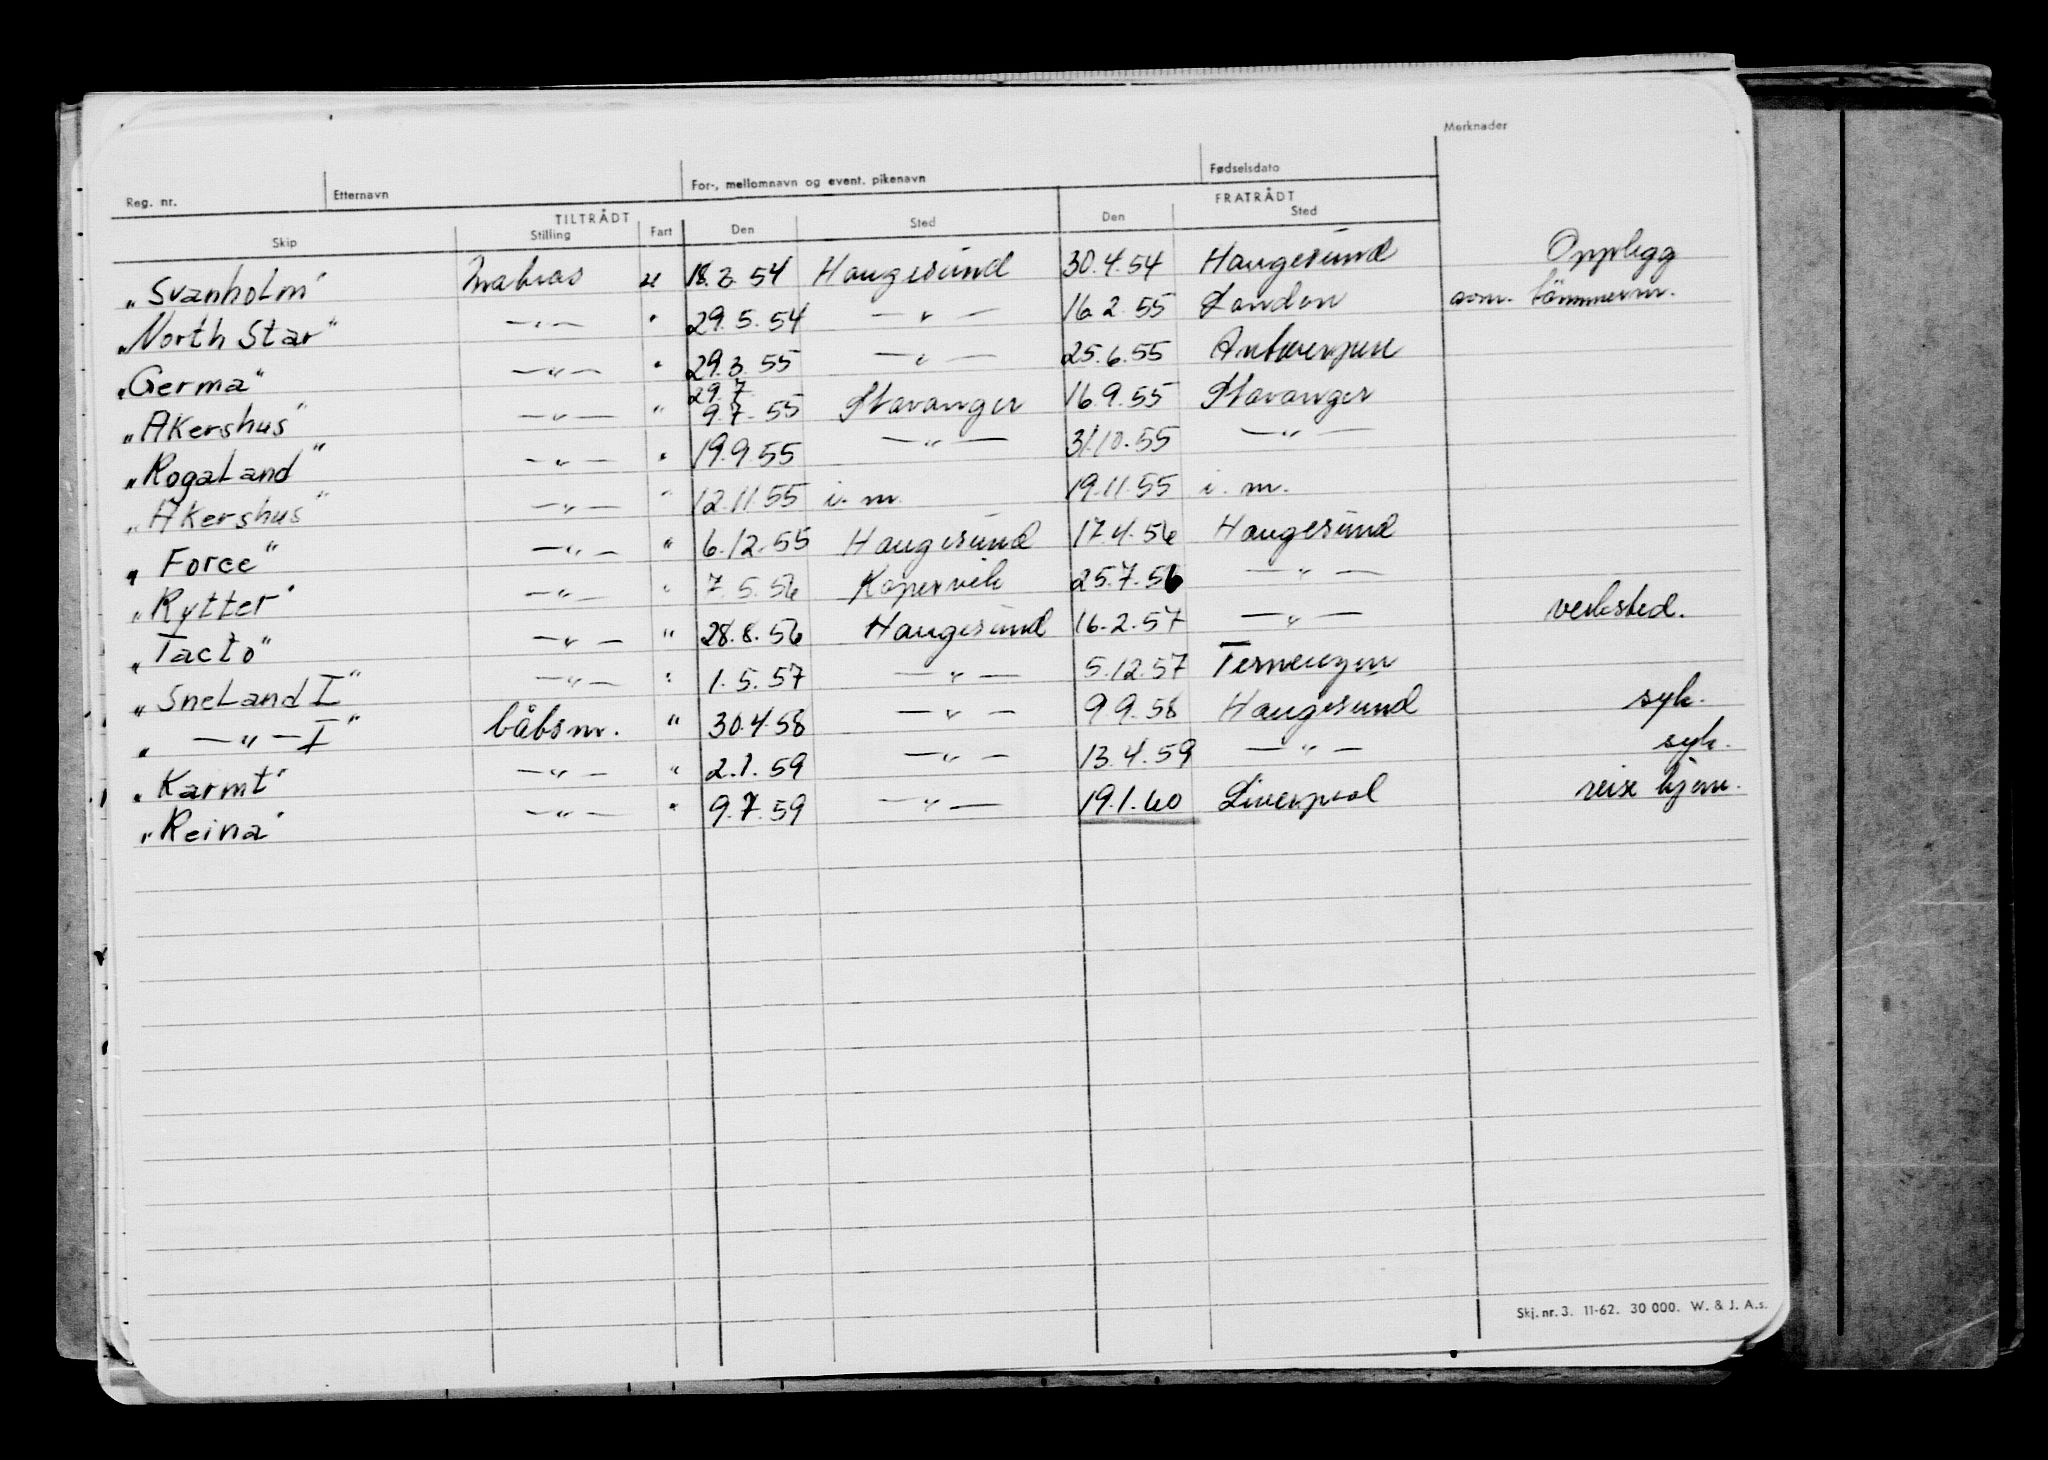 Merknader
Reg. nr. Etternavn For-, mellomnavn og event. pikenavn Fødselsdato
TILTRÅDT FRATRÅDT
Skip Stilling Fart Den Sted Den Sted
"Svanholm" Matros u 18.3.54 Haugesund 30.4.54 Haugesund Opplegg
"North Star" — " — " 29.5.54 — " — 16.2.55 London avm. tömmerm.
"Germa" — " — " 29.3.55 — " — 25.6.55 Antwerpen
29.7
"Akershus" — " — " 9.7.55 Stavanger 16.9.55 Stavanger
"Rogaland" — " — " 19.9.55 — " — 31.10.55 — " —
"Akershus" — " — " 12.11.55 i. m. 19.11.55 i. m.
"Force" — " — " 6.12.55 Haugesund 17.4.56 Haugesund
"Rytter" — " — " 7.5.56 Kopervik 25.7.56 — " —
"Tacto" — " — " 28.8.56 Haugesund 16.2.57 — " — verksted.
"Sneland I" — " — " 1.5.57 — " — 5.12.57 Terneuzen
" — " — I" båtsm. " 30.4.58 — " — 9.9.58 Haugesund syk.
"Karmt" — " — " 2.1.59 — " — 13.4.59 — " — syk.
"Reina" — " — " 9.7.59 — " — 19.1.60 Liverpool reise hjem.
Skj. nr. 3. 11-62. 30 000. W. & J. A.s.